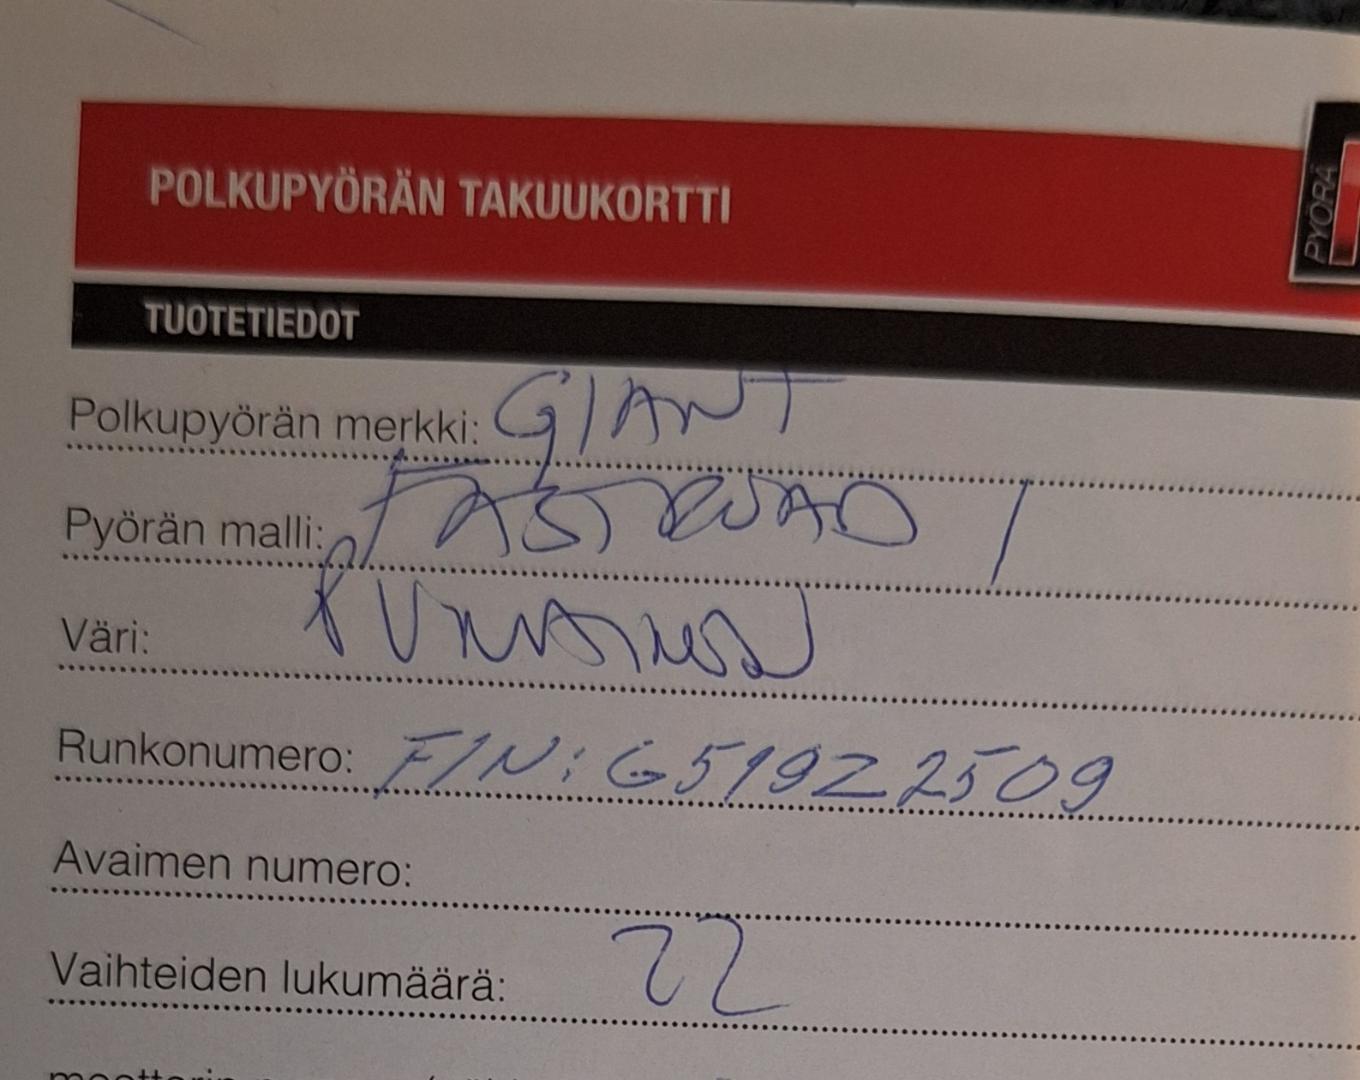 POLKUPYÖRÄN TAKUUKORTTI
PYÖRÄ
TUOTETIEDOT
Polkupyörän merkki: GIANT
Pyörän malli: FASTROAD 1
Väri: PUNAINEN
Runkonumero: FIN: G519Z2509
Avaimen numero:
Vaihteiden lukumäärä: 22